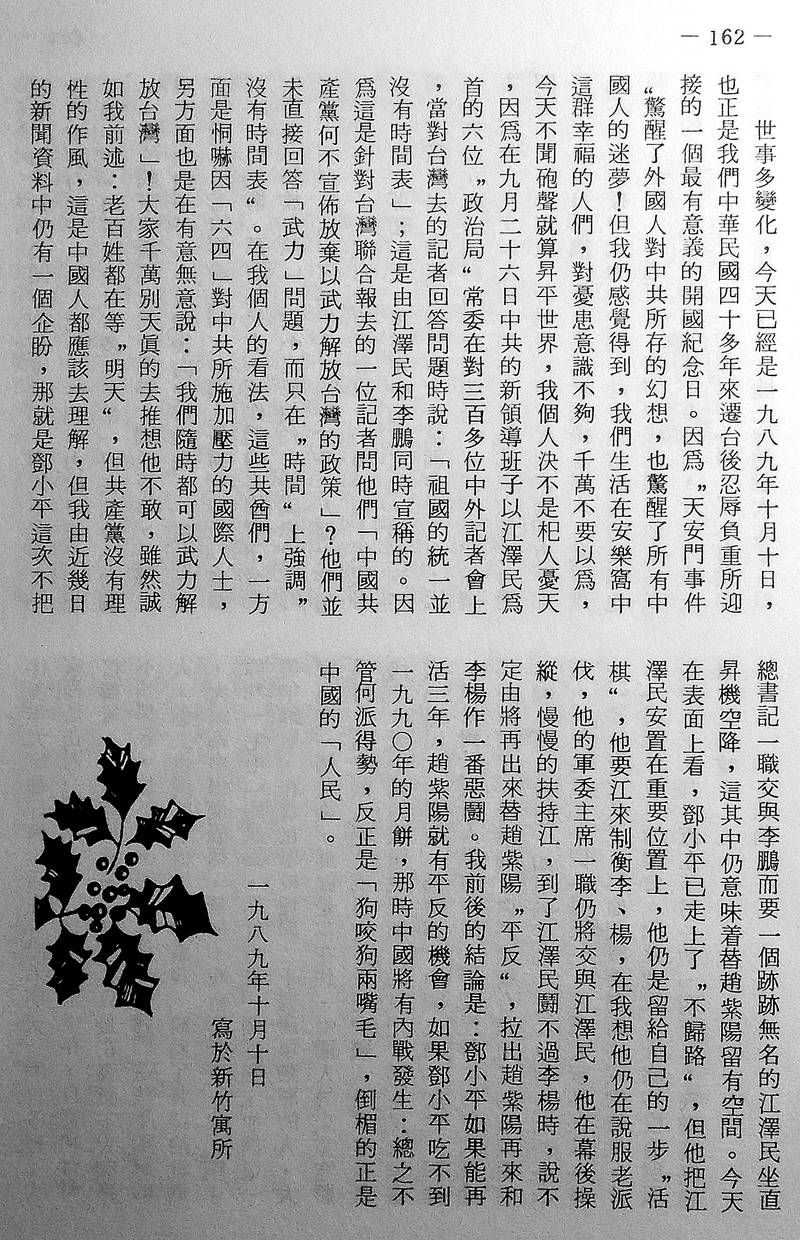 — 162 —
世事多變化，今天已經是一九八九年十月十日，
也正是我們中華民國四十多年來遷台後忍辱負重所迎
接的一個最有意義的開國紀念日。因爲〝天安門事件
〞驚醒了外國人對中共所存的幻想，也驚醒了所有中
國人的迷夢！但我仍感覺得到，我們生活在安樂窩中
這群幸福的人們，對憂患意識不夠，千萬不要以爲，
今天不聞砲聲就算昇平世界，我個人決不是杞人憂天
，因爲在九月二十六日中共的新領導班子以江澤民爲
首的六位〝政治局〞常委在對三百多位中外記者會上
，當對台灣去的記者回答問題時說：「祖國的統一並
沒有時間表」；這是由江澤民和李鵬同時宣稱的。因
爲這是針對台灣聯合報去的一位記者問他們「中國共
產黨何不宣佈放棄以武力解放台灣的政策」？他們並
未直接回答「武力」問題，而只在〝時間〞上強調〝
沒有時間表〞。在我個人的看法，這些共酋們，一方
面是恫嚇因「六四」對中共所施加壓力的國際人士，
另方面也是在有意無意說：「我們隨時都可以武力解
放台灣」！大家千萬別天眞的去推想他不敢，雖然誠
如我前述：老百姓都在等〝明天〞，但共產黨沒有理
性的作風，這是中國人都應該去理解，但我由近幾日
的新聞資料中仍有一個企盼，那就是鄧小平這次不把
總書記一職交與李鵬而要一個跡跡無名的江澤民坐直
昇機空降，這其中仍意味着替趙紫陽留有空間。今天
在表面上看，鄧小平已走上了〝不歸路〞，但他把江
澤民安置在重要位置上，他仍是留給自己的一步〝活
棋〞，他要江來制衡李、楊，在我想他仍在說服老派
伐，他的軍委主席一職仍將交與江澤民，他在幕後操
縱，慢慢的扶持江，到了江澤民鬪不過李楊時，說不
定由將再出來替趙紫陽〝平反〞，拉出趙紫陽再來和
李楊作一番惡鬪。我前後的結論是：鄧小平如果能再
活三年，趙紫陽就有平反的機會，如果鄧小平吃不到
一九九〇年的月餅，那時中國將有內戰發生：總之不
管何派得勢，反正是「狗咬狗兩嘴毛」，倒楣的正是
中國的「人民」。
一九八九年十月十日
寫於新竹寓所